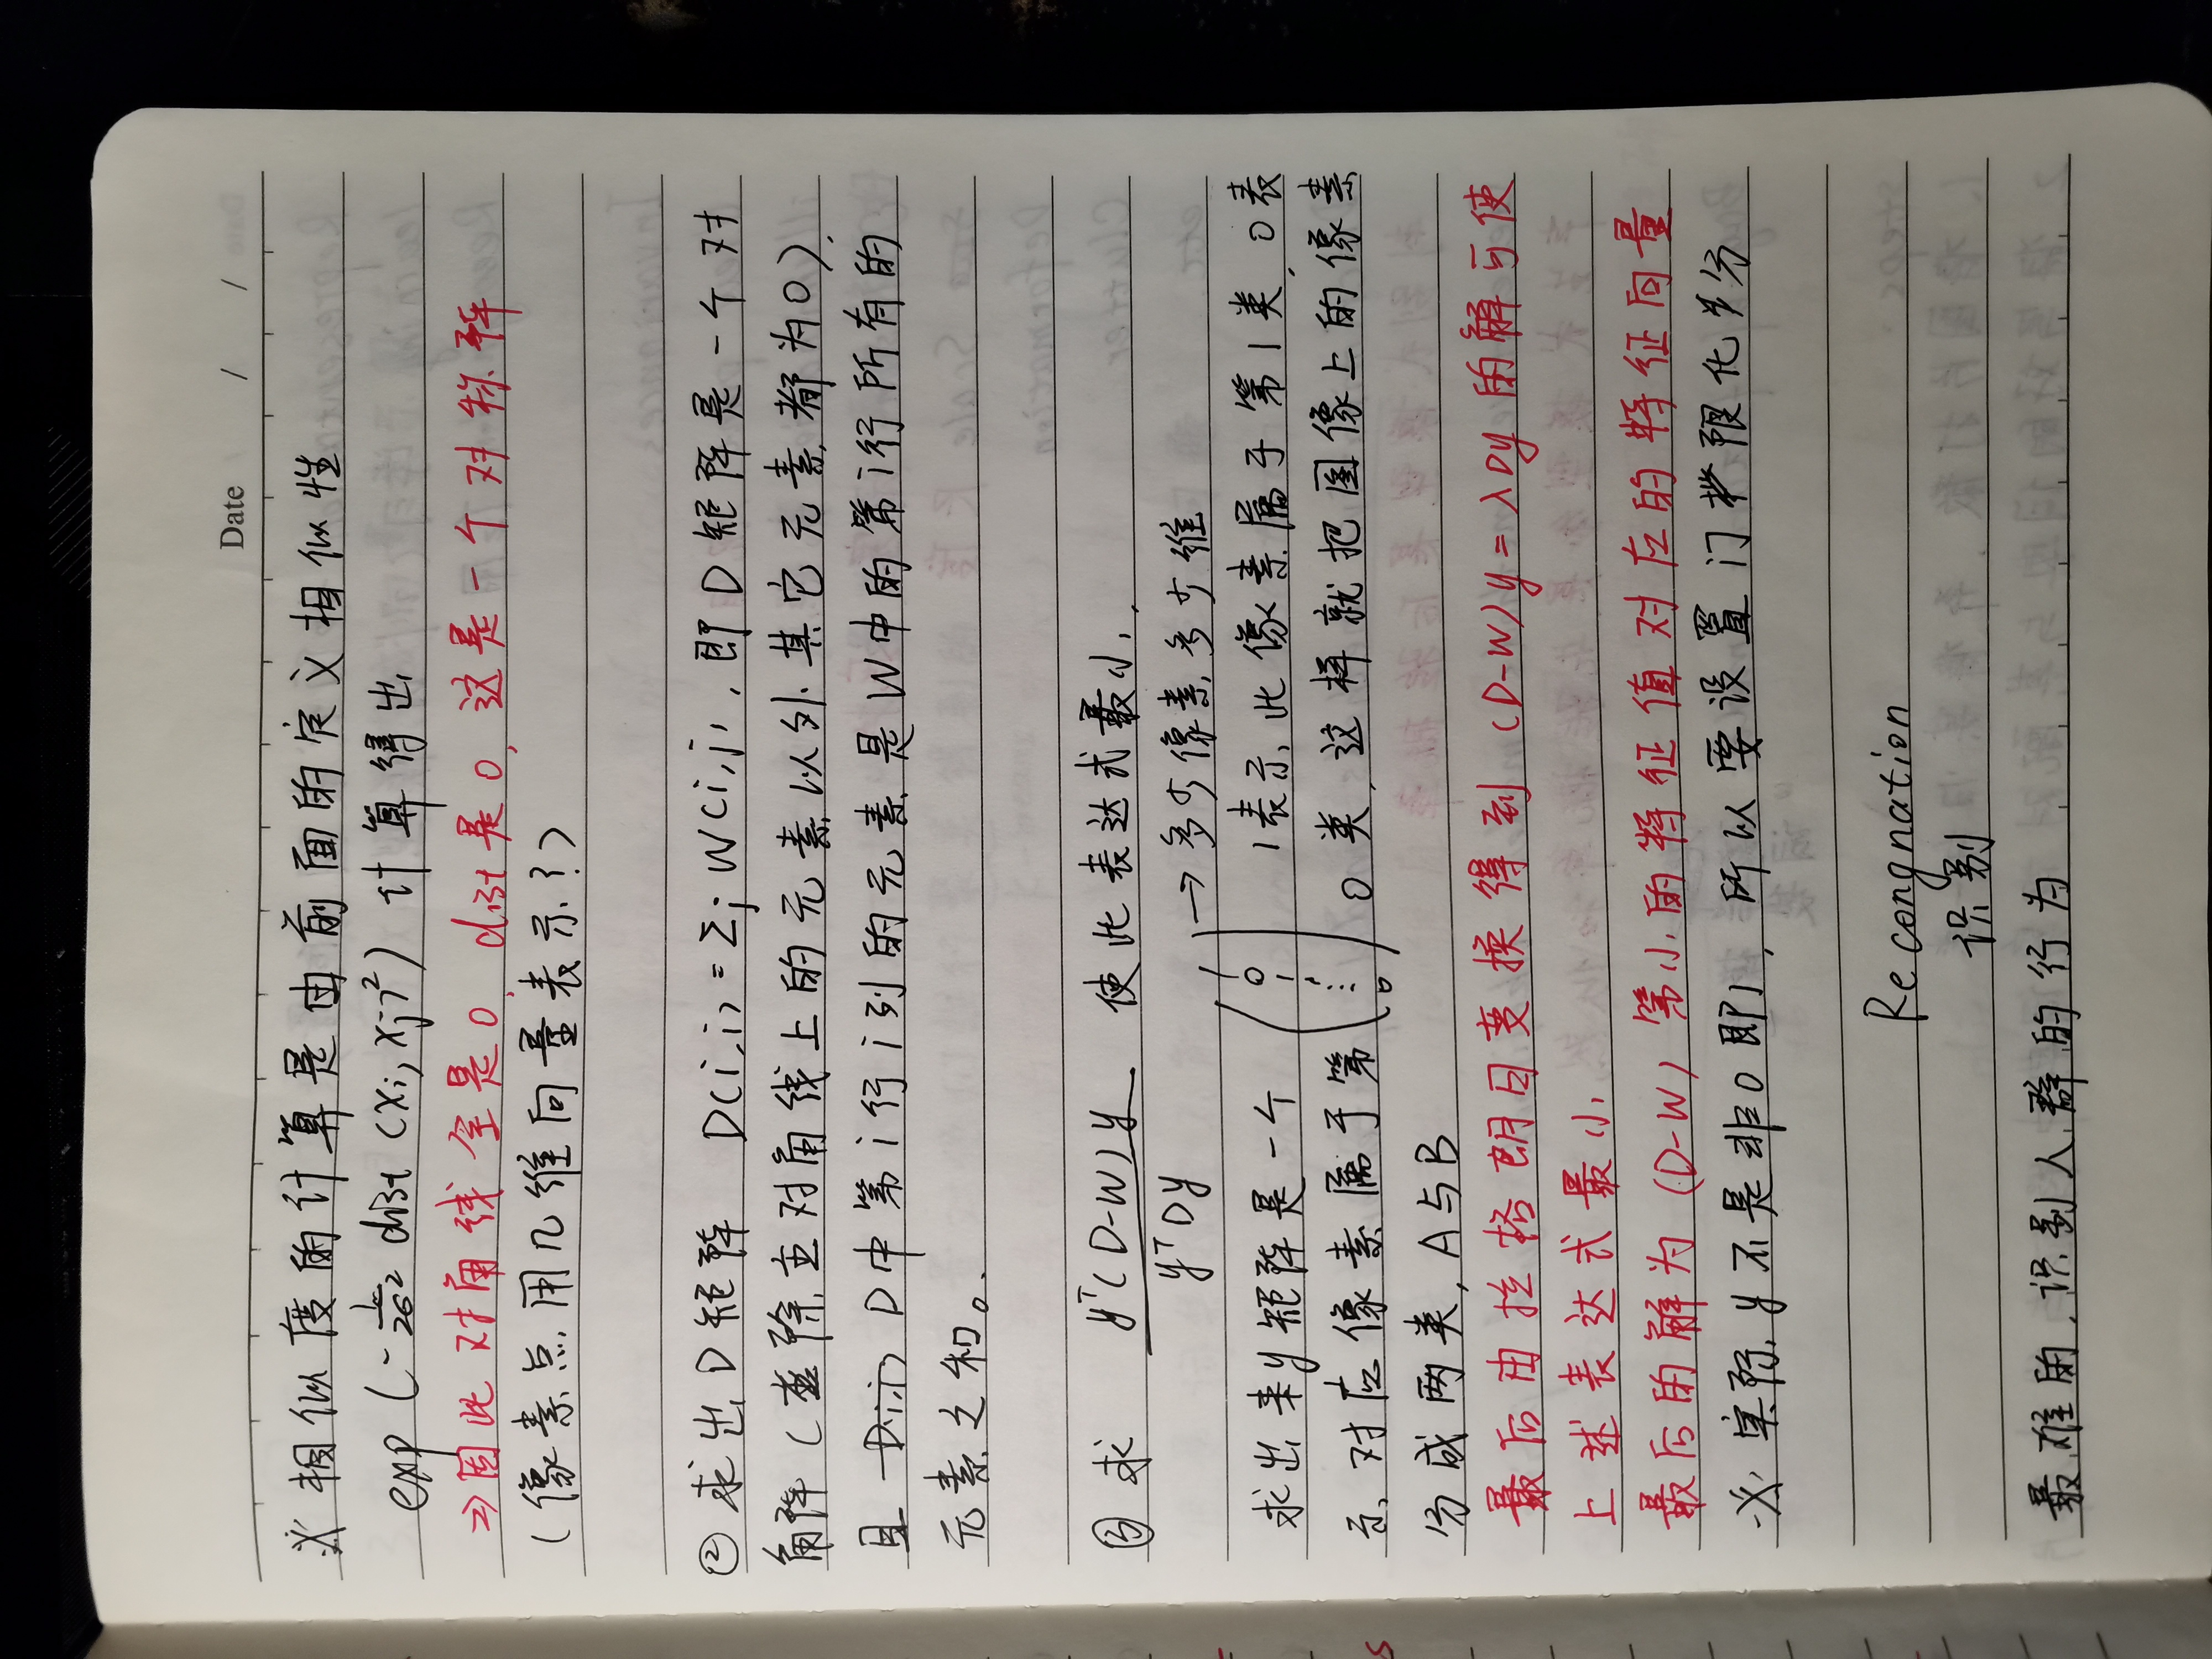 Date / /
※ 相似度的计算是由前面的定义相似性
exp (-1/2σ² dist (xi, xj)²) 计算得出
⇒因此对角线全是0, dist是0, 这是一个对称阵
(像素点用几维向量表示?)
② 求出D矩阵 D(i,i) = Σj W(i,j), 即D矩阵是一个对
角阵(除主对角线上的元素以外其它元素都为0),
且 D中第i行i列的元素是W中的第i行所有的
元素之和。
③ 求 yᵀ(D-W)y / yᵀDy 使此表达式最小,
→多少像素多少维
求出来y矩阵是一个 (1 0 1 ⋮ 0) 1表示此像素属于第1类, 0表
示对应像素属于第0类, 这样就把图像上的像素
分成两类, A与B
最后由拉格朗日变换得到 (D-W)y=λDy 的解可使
上述表达式最小,
最后的解为(D-W)第小的特征值对应的特征向量
※ 实际y不是非0即1, 所以要设置门限化划分
Recongnation
识别
最难的, 识别人群的行为